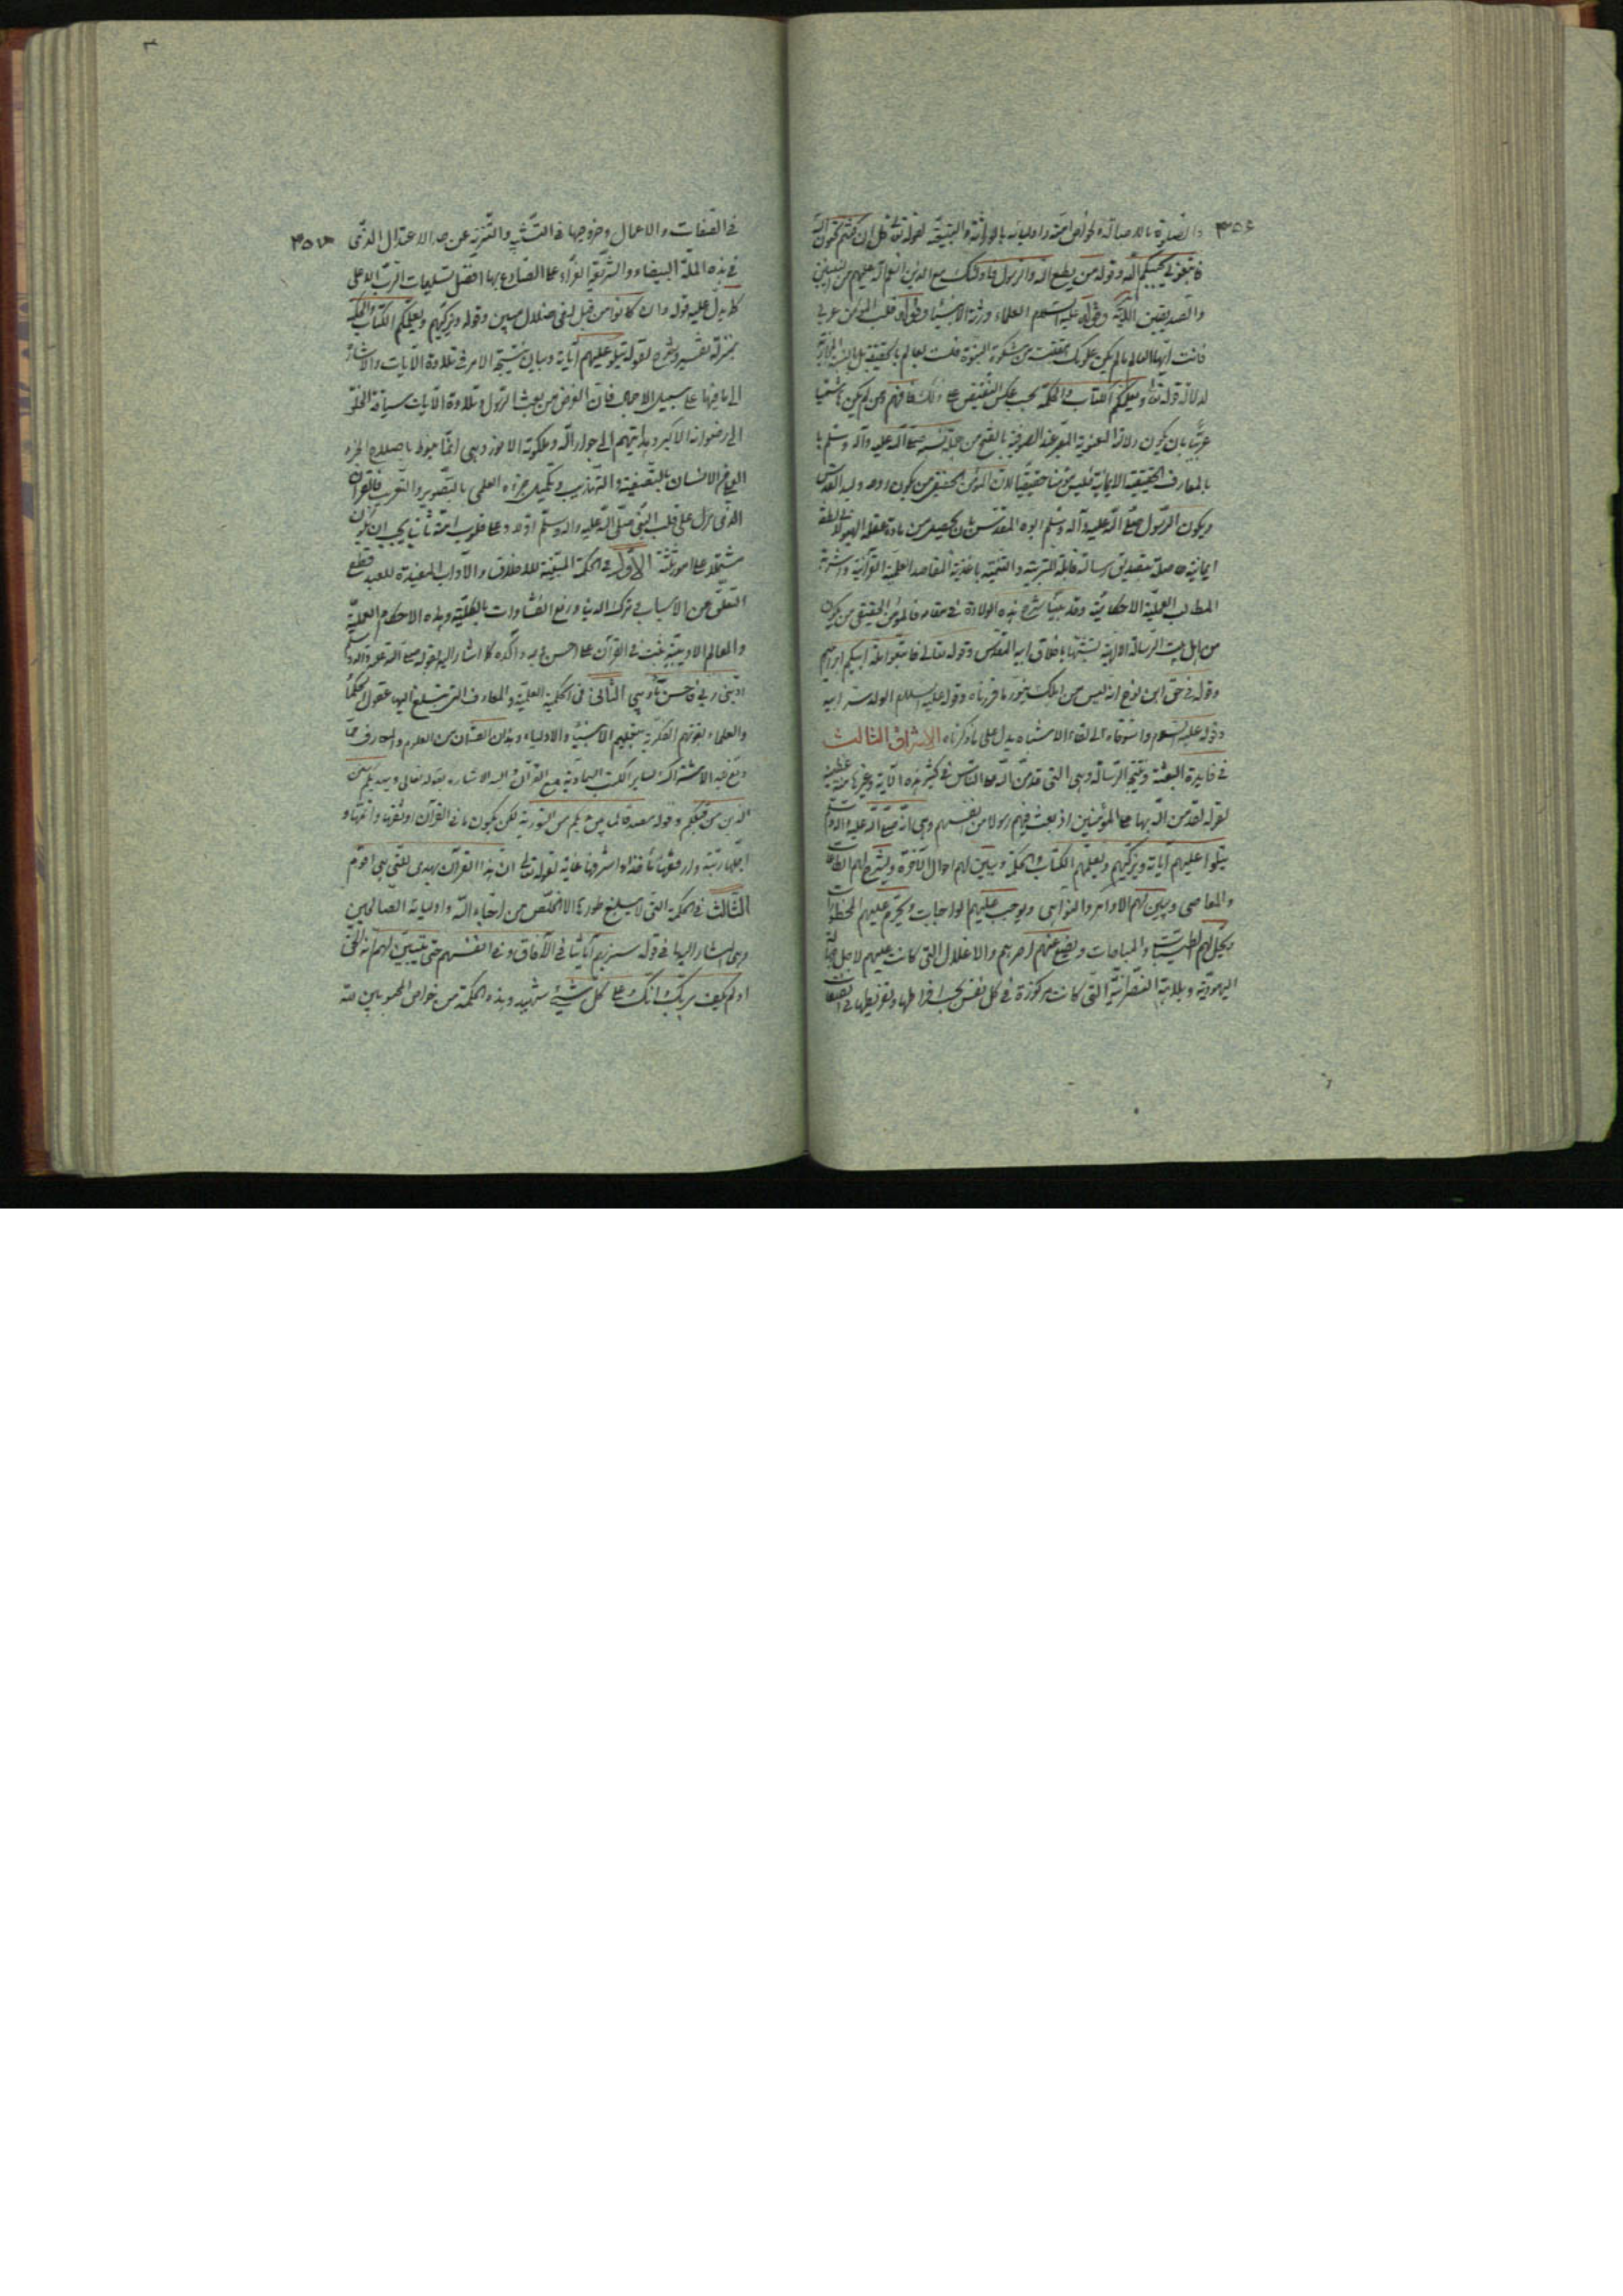 ٣٥٦
والضرورة بالاصالة ولخواص امته واوليائه بالوراثة والتبعية لقوله تعالى قل ان كنتم تحبون الله
فاتبعوني يحببكم الله وقوله من يطع الله والرسول فاولئك مع الذين انعم الله عليهم من النبيين
والصديقين الآية وقوله عليه السلام العلماء ورثة الانبياء وقوله قلب المؤمن عربي
فانت ايها العالم ما لم يكن علومك مقتبسة من مشكوة النبوة فلست بعالم بالحقيقة بل بالمجاز
لدلالة قوله تعالى ويعلمكم الكتاب والحكمة بحسب عكس النقيض على ذلك فافهم ومن لم يكن هاشميا
عربيا بان يكون ولادة المعنوية المعتبر عند الصوفية
بالمعارف الحقيقية الايمانية فليس مؤمنا حقيقيا لان المؤمن الحقيقي من يكون ولد القدس
ويكون الرسول صلى الله عليه وآله وسلم ابوه المقدس بان يحصل من مادة عقله الهيولاني نطفة
ايمانية حاصلة بتصديق رسالته قابلة للتربية والتنمية باغذية المقاصد العلمية القرآنية واشربة
المطالب العملية الاحكامية وقد بينا شرح هذه الولادة في مقامه فالمؤمن الحقيقي من يكون
من اهل بيت الرسالة الالهية بتشبهها باخلاق ابيه المقدس وقوله تعالى فاتبعوا ملة ابيكم ابراهيم
وقوله في حق ابن نوح انه ليس من اهلك ينور ما قررناه وقوله عليه السلام الولد سر ابيه
وقوله عليه السلام واشوقاه الى لقاء الاشتباه يدل على ما ذكرناه الاشراق الثالث
في فايدة البعثة ونتيجة الرسالة وهي التي قد من الله على الناس في كثير هذه الآية وغيرها منة عظيمة
لقوله لقد من الله بها على المؤمنين اذ بعث فيهم رسولا من انفسهم وهي انه صلى الله عليه وآله وسلم
يتلوا عليهم آياته ويزكيهم ويعلمهم الكتاب والحكمة ويبين لهم احوال الآخرة ويشرح لهم الطاعات
والمعاصي ويبين لهم الاوامر والنواهي ويوجب عليهم الواجبات ويحرم عليهم المحظورات
ويحل لهم الطيبات والمباحات ويضع عنهم اصرهم والاغلال التي كانت عليهم لاجل
اليهودية وبلاهة النصرانية التي كانت مركوزة في كل نفس بحسب افراطها وتفريطها في
٣٥٧
في الصفات والاعمال وخروجها في التشبيه والتنزيه عن حد الاعتدال الذي
في هذه الملة البيضاء والشريعة الغراء على الصادع بها افضل تسليمات الرب الاعلى
كما يدل عليه قوله وان كانوا من قبل لفي ضلال مبين وقوله ويزكيهم ويعلمكم الكتاب والحكمة
بمنزلة تفسير وشرح لقوله يتلو عليهم آياته وبيان نتيجة الامر في تلاوة الآيات والاشارة
الى ما فيها على سبيل الاجمال فان الغرض من بعث الرسول وتلاوة الآيات سياقة الخلق
الى رضوانه الاكبر وهدايتهم الى جوار الله وملكوته الانور وهي انما منوط باصلاح الجزء
العملي من الانسان بالتصفية والتهذيب وتكميل جزءه العلمي بالتصوير والتقريب فالقرآن
الذي نزل على قلب النبي صلى الله عليه وآله وسلم اولا وعلى قلوب امته ثانيا يجب ان يكون
مشتملا على امور ثلثة الاول في الحكمة المبينة للاخلاق والآداب المفيدة للعبد قطع
التعلق عن الاسباب في ترك الدنيا ورفع الغشاوات بالكلية وهذه الاحكام العملية
والمعالم الادبية يثبت في القرآن على احسن وجه وآكده كما اشار اليه بقوله صلى الله عليه وآله وسلم
ادبني ربي فاحسن تأديبي الثاني في الحكمة العلمية والمعارف التي تبلغ اليها عقول الحكماء
والعلماء بقوتهم الفكرية بتعليم الانبياء والاولياء وهذان القسمان من العلوم والمعارف مما
وقع فيه الاشتراك لساير الكتب السماوية مع القرآن واليه الاشارة بقوله تعالى ويهديكم سنن
الذين من قبلكم وقوله مصدقا لما بين يديكم من التورية لكن يكون ما في القرآن اوثقها واتمها و
اجلها رتبة وارفعها مأخذا واشرفها غاية لقوله تعالى ان هذا القرآن يهدي للتي هي اقوم
الثالث في الحكمة التي لا يبلغ طورها الا المخلص من احباء الله واوليائه الصالحين
وهي المشار اليها في قوله سنريهم آياتنا في الآفاق وفي انفسهم حتى يتبين لهم انه الحق
اولم يكف بربك انك على كل شيء شهيد وهذه الحكمة من خواص المحبوبين لله